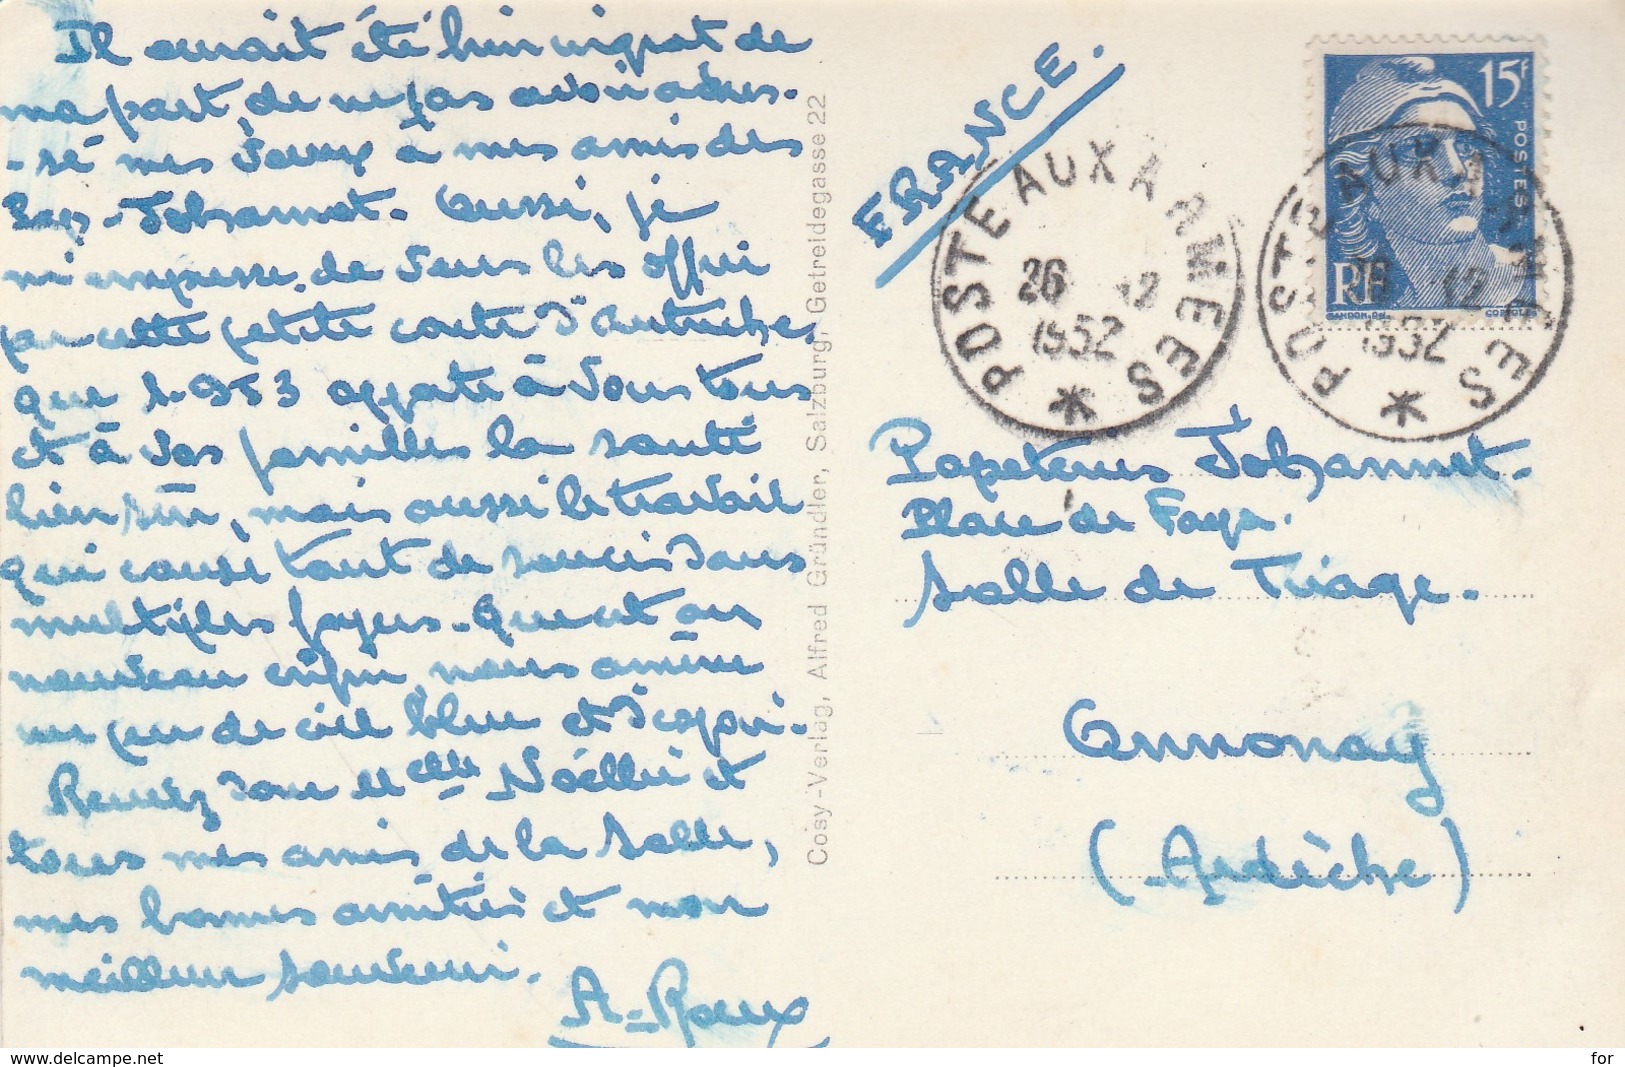 Il aurait été bien ingrat de
ma part, de ne pas avoir adres-
-sé mes voeux à mes amis des
Pap-Johannot. Aussi, je
m'empresse, de vous les offrir
par cette petite carte d'Autriche,
que 1.953 apporte à vous tous
et à vos familles la santé
bien sûr, mais aussi le travail
qui cause tant de soucis dans
multiples foyers. Que cet an
nouveau enfin, nous amène
un peu de ciel bleu et d'espoir.
Recevez donc Melle Noëllie et
tous mes amis de la Salle,
mes bonnes amitiés et mon
meilleur souvenir.
A. Roux
Cosy-Verlag, Alfred Gründler, Salzburg, Getreidegasse 22
FRANCE.
POSTE AUX ARMEES
26 12
1952
POSTE AUX ARMEES
26 12
1952
15f
POSTES
RF
GANDON.DEL.
CORTOT.SC.
Papeteries Johannot.
Place de Faya.
Salle de Triage.
Annonay
(Ardèche)
www.delcampe.net
for